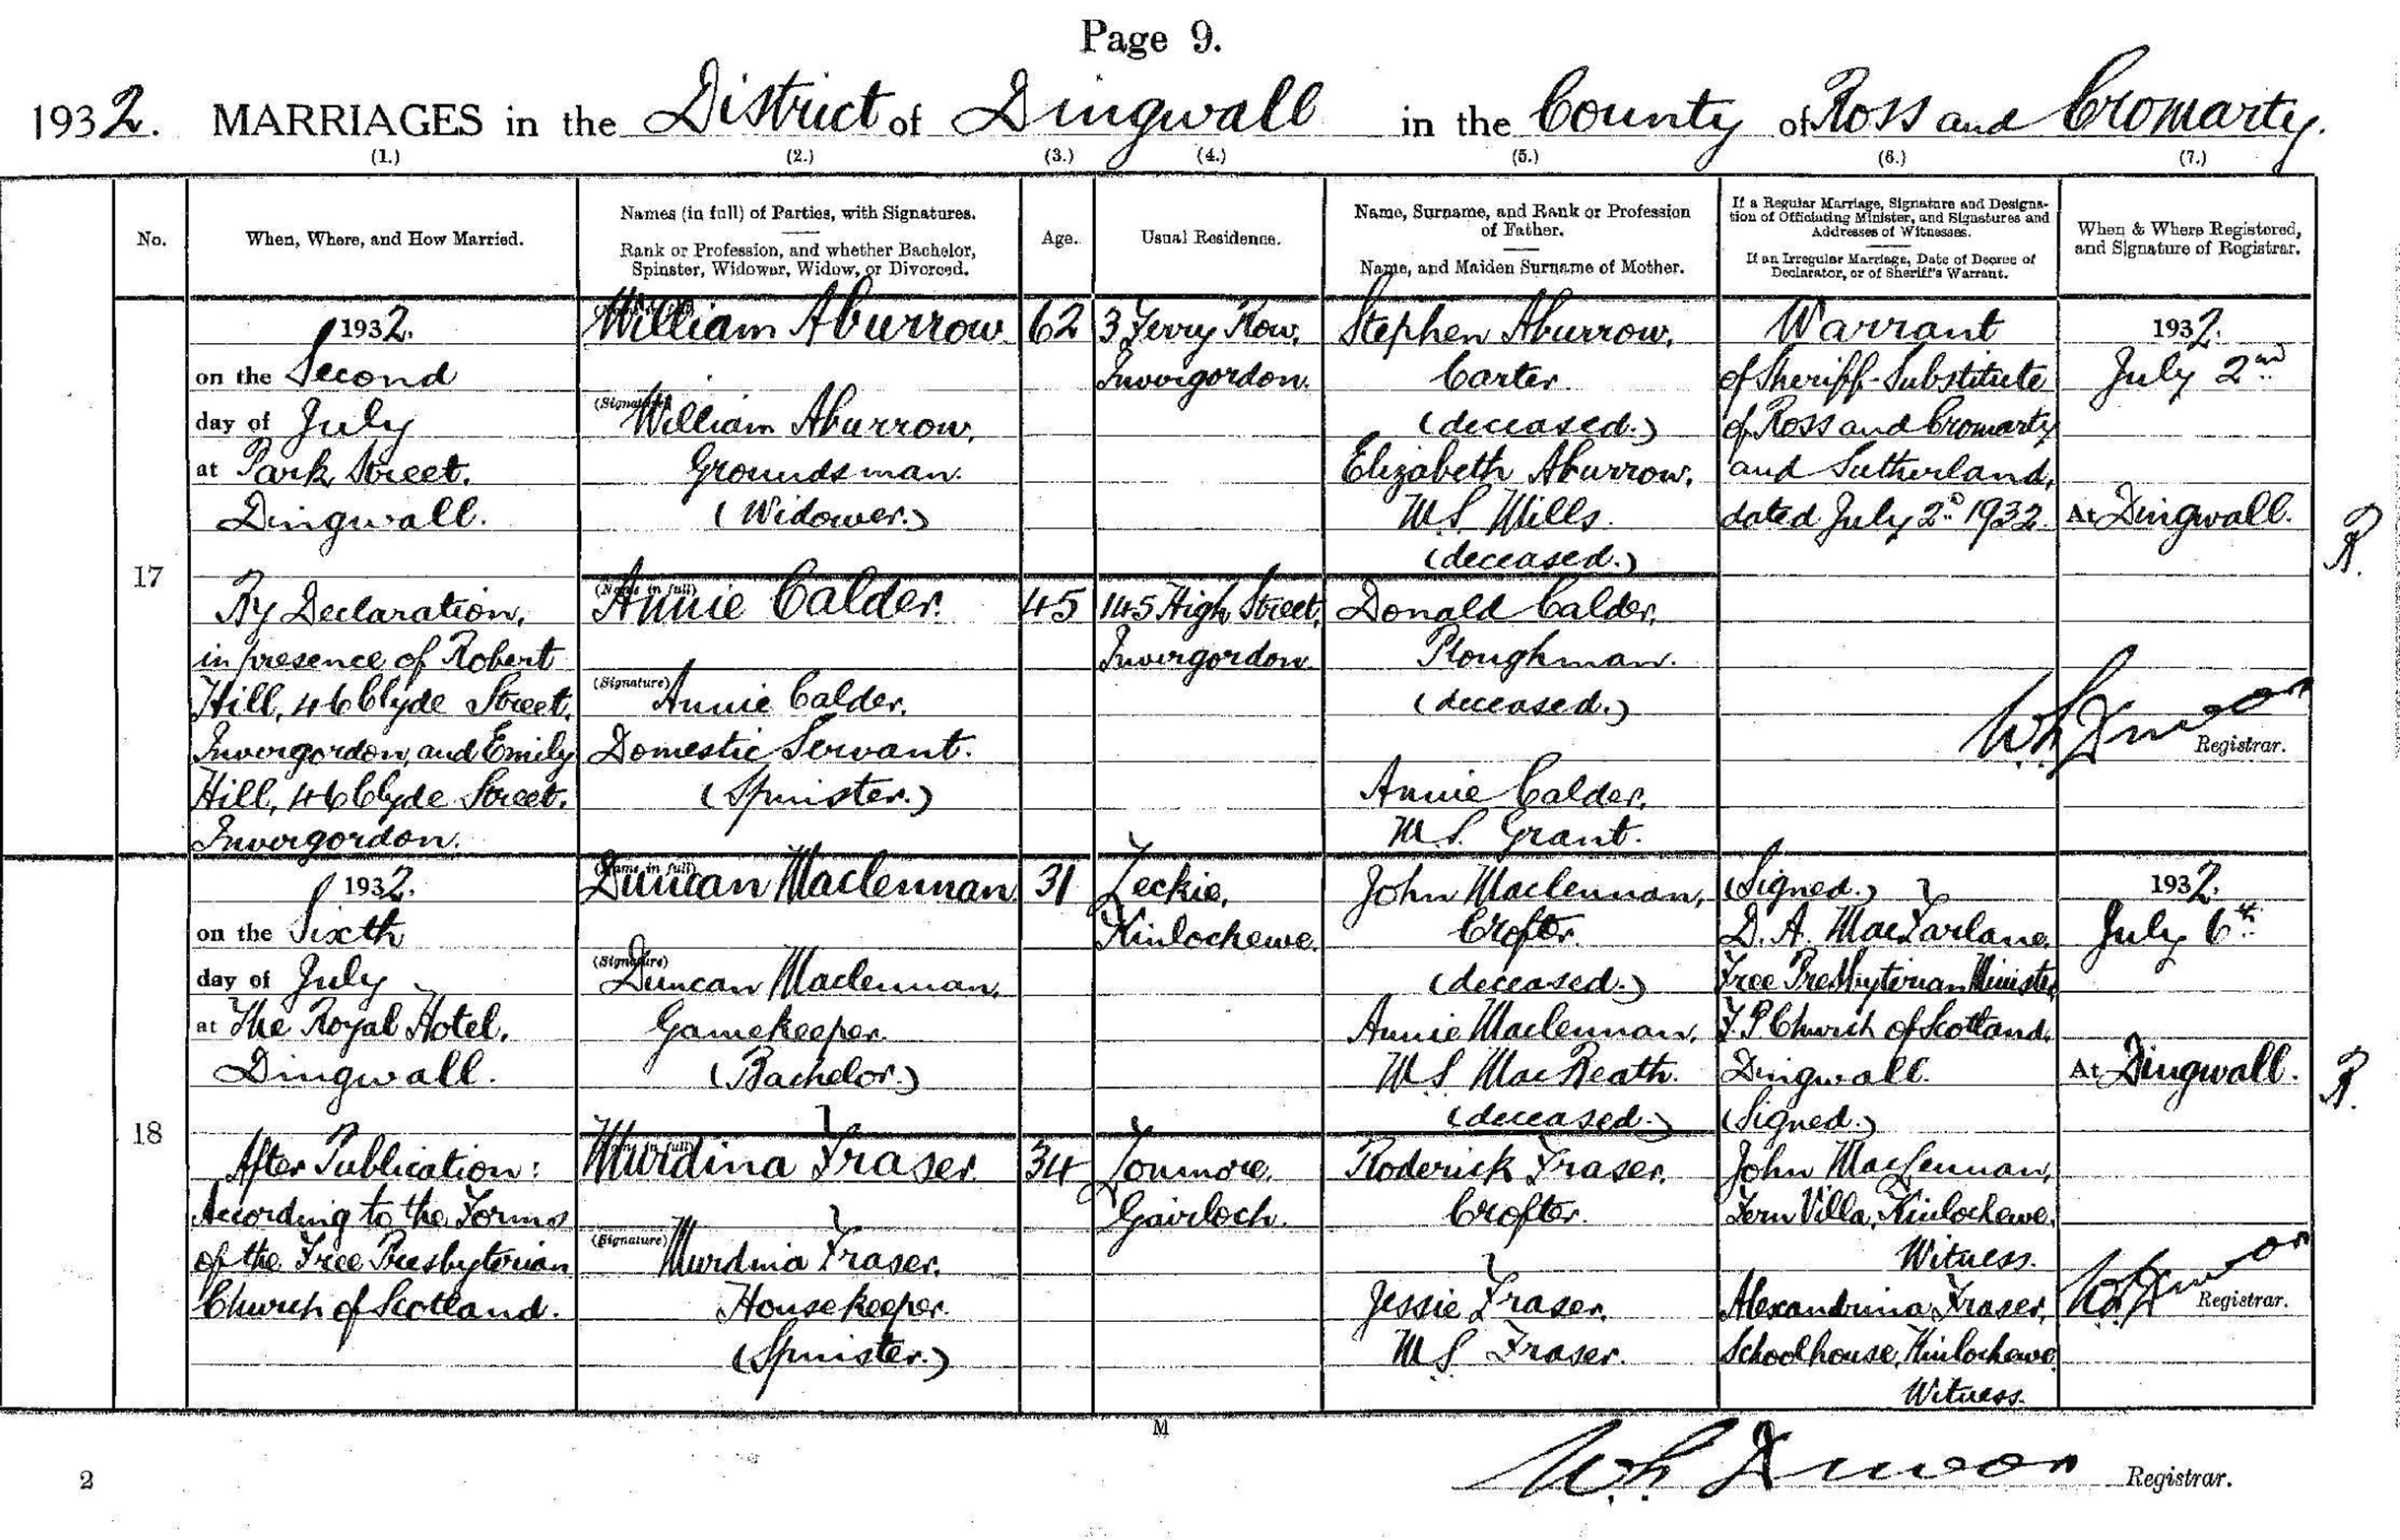 Page 9.
1932. MARRIAGES in the District of Dingwall in the County of Ross and Cromarty.
(1.) (2.) (3.) (4.) (5.) (6.) (7.)
No.
When, Where, and How Married.
Names (in full) of Parties, with Signatures.
Rank or Profession, and whether Bachelor,
Spinster, Widower, Widow, or Divorced.
Age.
Usual Residence.
Name, Surname, and Rank or Profession
of Father.
Name, and Maiden Surname of Mother.
If a Regular Marriage, Signature and Designa-
tion of Officiating Minister, and Signatures and
Addresses of Witnesses.
If an Irregular Marriage, Date of Decree of
Declarator, or of Sheriff's Warrant.
When & Where Registered,
and Signature of Registrar.
17
1932.
on the Second
day of July
at Park Street.
Dingwall.
By Declaration,
in presence of Robert
Hill, 46 Clyde Street,
Invergordon, and Emily
Hill, 46 Clyde Street,
Invergordon.
William Aburrow.
(Signature)
William Aburrow,
Groundsman.
(Widower.)
62
3 Ferry Row,
Invergordon.
Stephen Aburrow,
Carter.
(deceased.)
Elizabeth Aburrow,
M.S. Mills.
(deceased.)
(Name in full)
Annie Calder.
(Signature)
Annie Calder.
Domestic Servant.
(Spinster.)
45
145 High Street,
Invergordon
Donald Calder,
Ploughman.
(deceased.)
Annie Calder,
M.S. Grant.
Warrant
of Sheriff-Substitute
of Ross and Cromarty
and Sutherland,
dated July 2nd 1932.
1932.
July 2nd
At Dingwall.
R.
Registrar.
18
1932.
on the Sixth
day of July
at The Royal Hotel,
Dingwall.
After Publication:
According to the Forms
of the Free Presbyterian
Church of Scotland.
(Name in full)
Duncan Maclennan
(Signature)
Duncan Maclennan,
Gamekeeper.
(Bachelor.)
31
Leckie,
Kinlochewe.
John Maclennan,
Crofter.
(deceased.)
Annie Maclennan,
M.S. MacBeath.
(deceased.)
(Name in full)
Murdina Fraser.
(Signature)
Murdina Fraser.
Housekeeper.
(Spinster.)
34
Lonmore,
Gairloch.
Roderick Fraser,
Crofter.
Jessie Fraser,
M.S. Fraser.
(Signed.)
D. A. MacFarlane,
Free Presbyterian Minister
F.P. Church of Scotland,
Dingwall.
(Signed.)
John MacLennan,
Fern Villa, Kinlochewe,
Witness.
Alexandrina Fraser,
Schoolhouse, Kinlochewe
Witness.
1932.
July 6th
At Dingwall.
R.
Registrar.
M
2
Registrar.